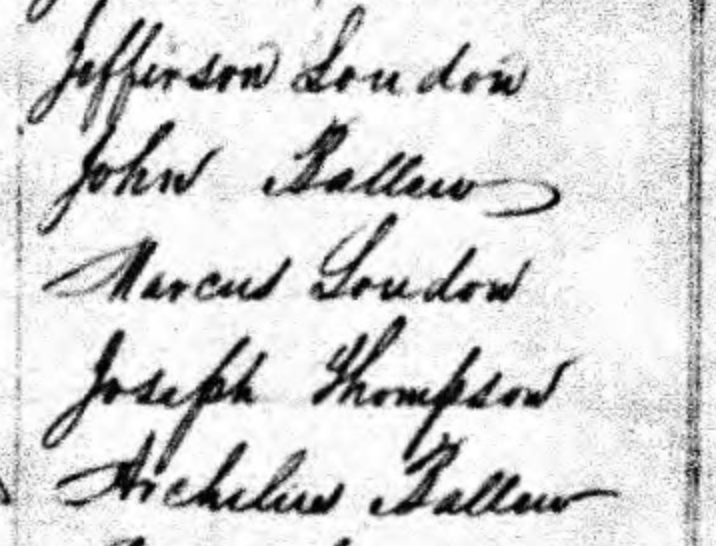 Jefferson Loudon
John Ballew
Marcus Loudon
Joseph Thompson
Archelius Ballew